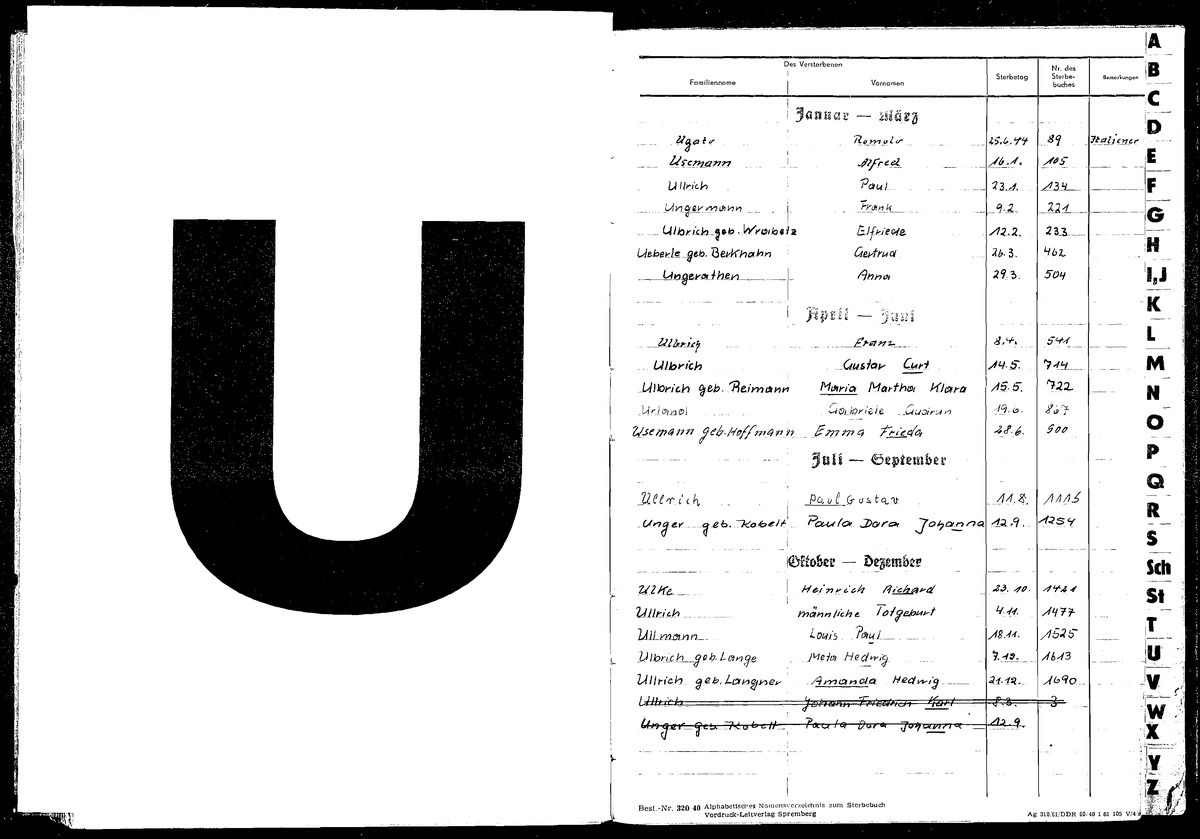 U
Des Verstorbenen
Familienname Vornamen Sterbetag Nr. des Sterbe-buches Bemerkungen
Januar — März
Ugato Romolo 25.6.44 89 Italiener
Usemann Alfred 16.1. 105
Ullrich Paul 23.1. 134
Ungermann Frank 9.2. 221
Ulbrich geb. Wrobetz Elfriede 12.2. 233
Ueberle geb. Berkhahn Gertrud 26.3. 462
Ungerathen Anna 29.3. 504
April — Juni
Ulbrich Franz 8.4. 541
Ulbrich Gustav Curt 14.5. 714
Ulbrich geb. Reimann Maria Martha Klara 15.5. 722
Urland Gabriele Gudrun 19.6. 867
Usemann geb. Hoffmann Emma Frieda 28.6. 900
Juli — September
Ullrich Paul Gustav 11.8. 1115
Unger geb. Kobelt Paula Dora Johanna 12.9. 1254
Oktober — Dezember
Ulke Heinrich Richard 23.10. 1421
Ullrich männliche Totgeburt 4.11. 1477
Ullmann Louis Paul 18.11. 1525
Ulbrich geb. Lange Meta Hedwig 7.12. 1613
Ullrich geb. Langner Amanda Hedwig 21.12. 1690
Ullrich Johann Friedrich Karl 8.3. 3
Unger geb. Kobelt Paula Dora Johanna 12.9.
Best.-Nr. 320 40 Alphabetisches Namensverzeichnis zum Sterbebuch
Vordruck-Leitverlag Spremberg
Ag 310/61/DDR
A
B
C
D
E
F
G
H
I,J
K
L
M
N
O
P
Q
R
S
Sch
St
T
U
V
W
X
Y
Z